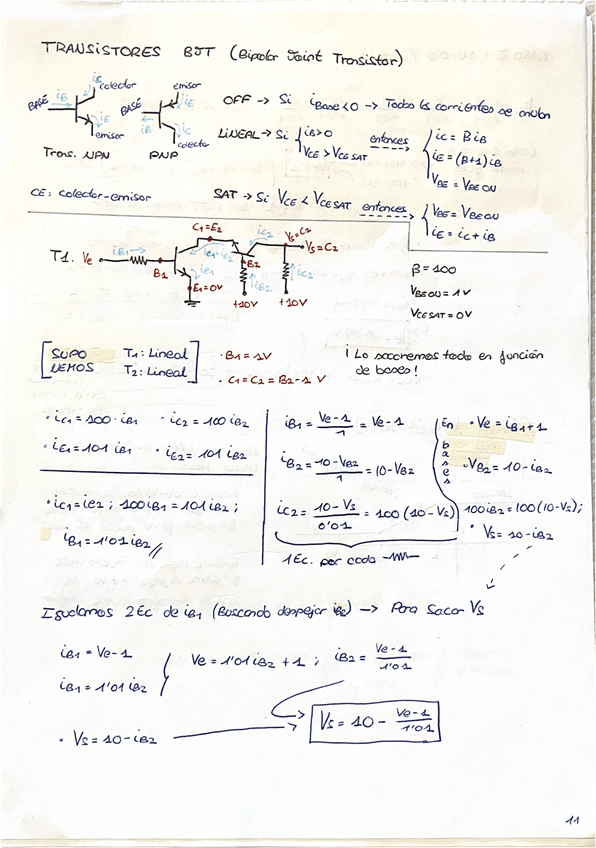 TRANSISTORES BJT (Bipolar Joint Transistor)
iC colector
BASE iB
iE
emisor
Trans. NPN
emisor
iE
BASE iB
iC
colector
PNP
OFF → Si iBase<0 → Todas las corrientes se anulan
LINEAL → Si { iB>0
VCE > VCE SAT
entonces
iC = B iB
iE = (B+1) iB
VBE = VBE ON
CE: colector-emisor
SAT → Si VCE < VCE SAT entonces
VBE = VBE ON
iE = iC + iB
T1. Ve
iB1
B1
C1=E2
iE1
E1=0V
iC1=iE2
B2
iB2
+10V
iC2
VS=C2
VS=C2
iC2
+10V
β = 100
VBE ON = 1V
VCE SAT = 0V
SUPO
NEMOS
T1: Lineal
T2: Lineal
· B1 = 1V
· C1 = C2 = B2-1 V
¡ Lo sacaremos todo en función
de bases!
· iC1 = 100 · iB1 · iC2 = 100 iB2
· iE1 = 101 iB1 · iE2 = 101 iB2
· iC1 = iE2 ; 100 iB1 = 101 iB2 ;
iB1 = 1'01 iB2 //
iB1 = Ve-1 / 1 = Ve-1
iB2 = 10-VB2 / 1 = 10-VB2
iC2 = 10-VS / 0'01 = 100 (10-VS)
1 Ec. por cada
En bases
· Ve = iB1+1
· VB2 = 10-iB2
100 iB2 = 100 (10-VS);
· VS = 10-iB2
Igualamos 2 Ec de iB1 (Buscando despejar iB2) → Para Sacar VS
iB1 = Ve-1
iB1 = 1'01 iB2
Ve = 1'01 iB2 + 1 ; iB2 = Ve-1 / 1'01
· VS = 10-iB2
VS = 10 - Ve-1 / 1'01
11